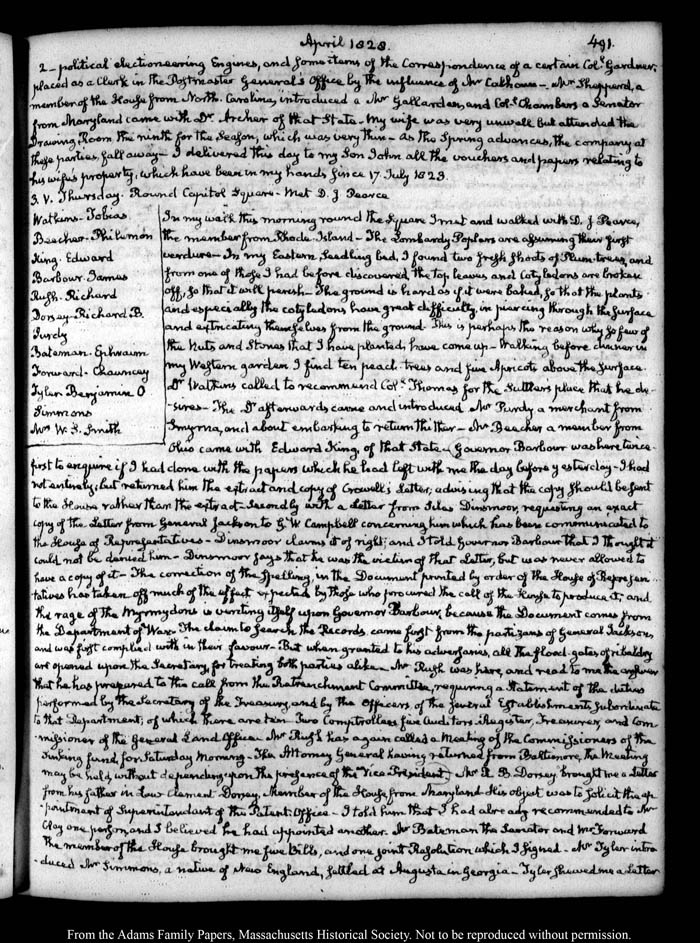 April 1828.
491.
2 — political electioneering Engines, and some items of the Correspondence of a certain Coll. Gardner,
placed as a Clerk in the Postmaster General's Office by the influence of Mr Calhoun — Mr Shepperd, a
member of the House from North Carolina, introduced a Mr Gallarden, and Coll. Chambers a Senator
from Maryland came with Dr. Archer of that State — My wife was very unwell but attended the
Drawing Room the ninth for the Season, which was very thin — As the Spring advances, the company at
these parties, fall away — I delivered this day to my Son John all the vouchers and papers relating to
his wife's property, which have been in my hands since 17 July 1823.
3. V. Thursday. Round Capitol Square — Met D. J Pearce
Watkins — Tobias
Beecher. Philemon
King. Edward
Barbour. James
Rush. Richard
Dorsey. Richard B.
Purdy
Bateman. Ephraim
Forward. Chauncey
Tyler Benjamin O
Simmons
Mrs W. S. Smith
In my walk this morning round the Square I met and walked with D. J Pearce,
the member from Rhode-Island — The Lombardy Poplars are assuming their first
verdure — In my Eastern Seedling bed, I found two fresh shoots of Plum-trees, and
from one of those I had before discovered, the top leaves and Cotyledons are broken
off, so that it will perish — The ground is hard as if it were baked, so that the plants
and especially the cotyledons have great difficulty, in piercing through the surface
and extricating themselves from the ground. This is perhaps the reason why so few of
the Nuts and Stones that I have planted, have come up — Walking before dinner in
my Western garden I find ten peach-trees and five Apricots above the surface.
Dr Watkins called to recommend Coll. Thomas for the Sutler's place that he de-
-sires — The Dr afterwards came and introduced Mr Purdy a merchant from
Smyrna, and about embarking to return thither — Mr Beecher a member from
Ohio came with Edward King, of that State — Governor Barbour was here twice
first to enquire if I had done with the papers which he had left with me the day before yesterday — I had
not entirely; but returned him the extract and copy of Crowell's Letter; advising that the copy should be sent
to the House rather than the extract — Secondly with a Letter from Silas Dinsmoor, requesting an exact
copy of the Letter from General Jackson to G. W Campbell concerning him which has been communicated to
the House of Representatives — Dinsmoor claims it of right; and I told Governor Barbour that I thought it
could not be denied him — Dinsmoor says that he was the victim of that Letter, but was never allowed to
have a copy of it — The correction of the spelling, in the Document printed by order of the House of Represen-
tatives has taken off much of the effect expected by those who procured the call of the House to produce it; and
the rage of the Myrmydons is venting itself upon Governor Barbour, because the Document comes from
the Department of War. The claim to search the Records, came first from the partizans of General Jackson,
and was first complied with in their favour — But when granted to his adversaries, all the flood-gates of ribaldry
are opened upon the Secretary, for treating both parties alike — Mr Rush was here, and read to me the answer
that he has prepared to the call from the Retrenchment Committee, requiring a Statement of the duties
performed by the Secretary of the Treasury, and by the Officers of the several Establishments subordinate
to that Department; of which there are ten. Two Comptrollers, five Auditors, Register, Treasurer, and Com-
-missioner of the General Land Office. Mr Rush has again called a Meeting of the Commissioners of the
Sinking fund, for Saturday Morning — The Attorney General having returned from Baltimore, the Meeting
may be held, without depending upon the presence of the Vice President. Mr R. B. Dorsey brought me a Letter
from his father in law Clement Dorsey, Member of the House from Maryland. His object was to solicit the ap-
-pointment of Superintendant of the Patent Office — I told him that I had already recommended to Mr
Clay one person, and I believed he had appointed another. Mr Bateman the Senator and Mr Forward
the member of the House brought me five Bills, and one joint Resolution which I signed — Mr Tyler intro-
-duced Mr Simmons, a native of New England, settled at Augusta in Georgia — Tyler shewed me a Letter
From the Adams Family Papers, Massachusetts Historical Society. Not to be reproduced without permission.